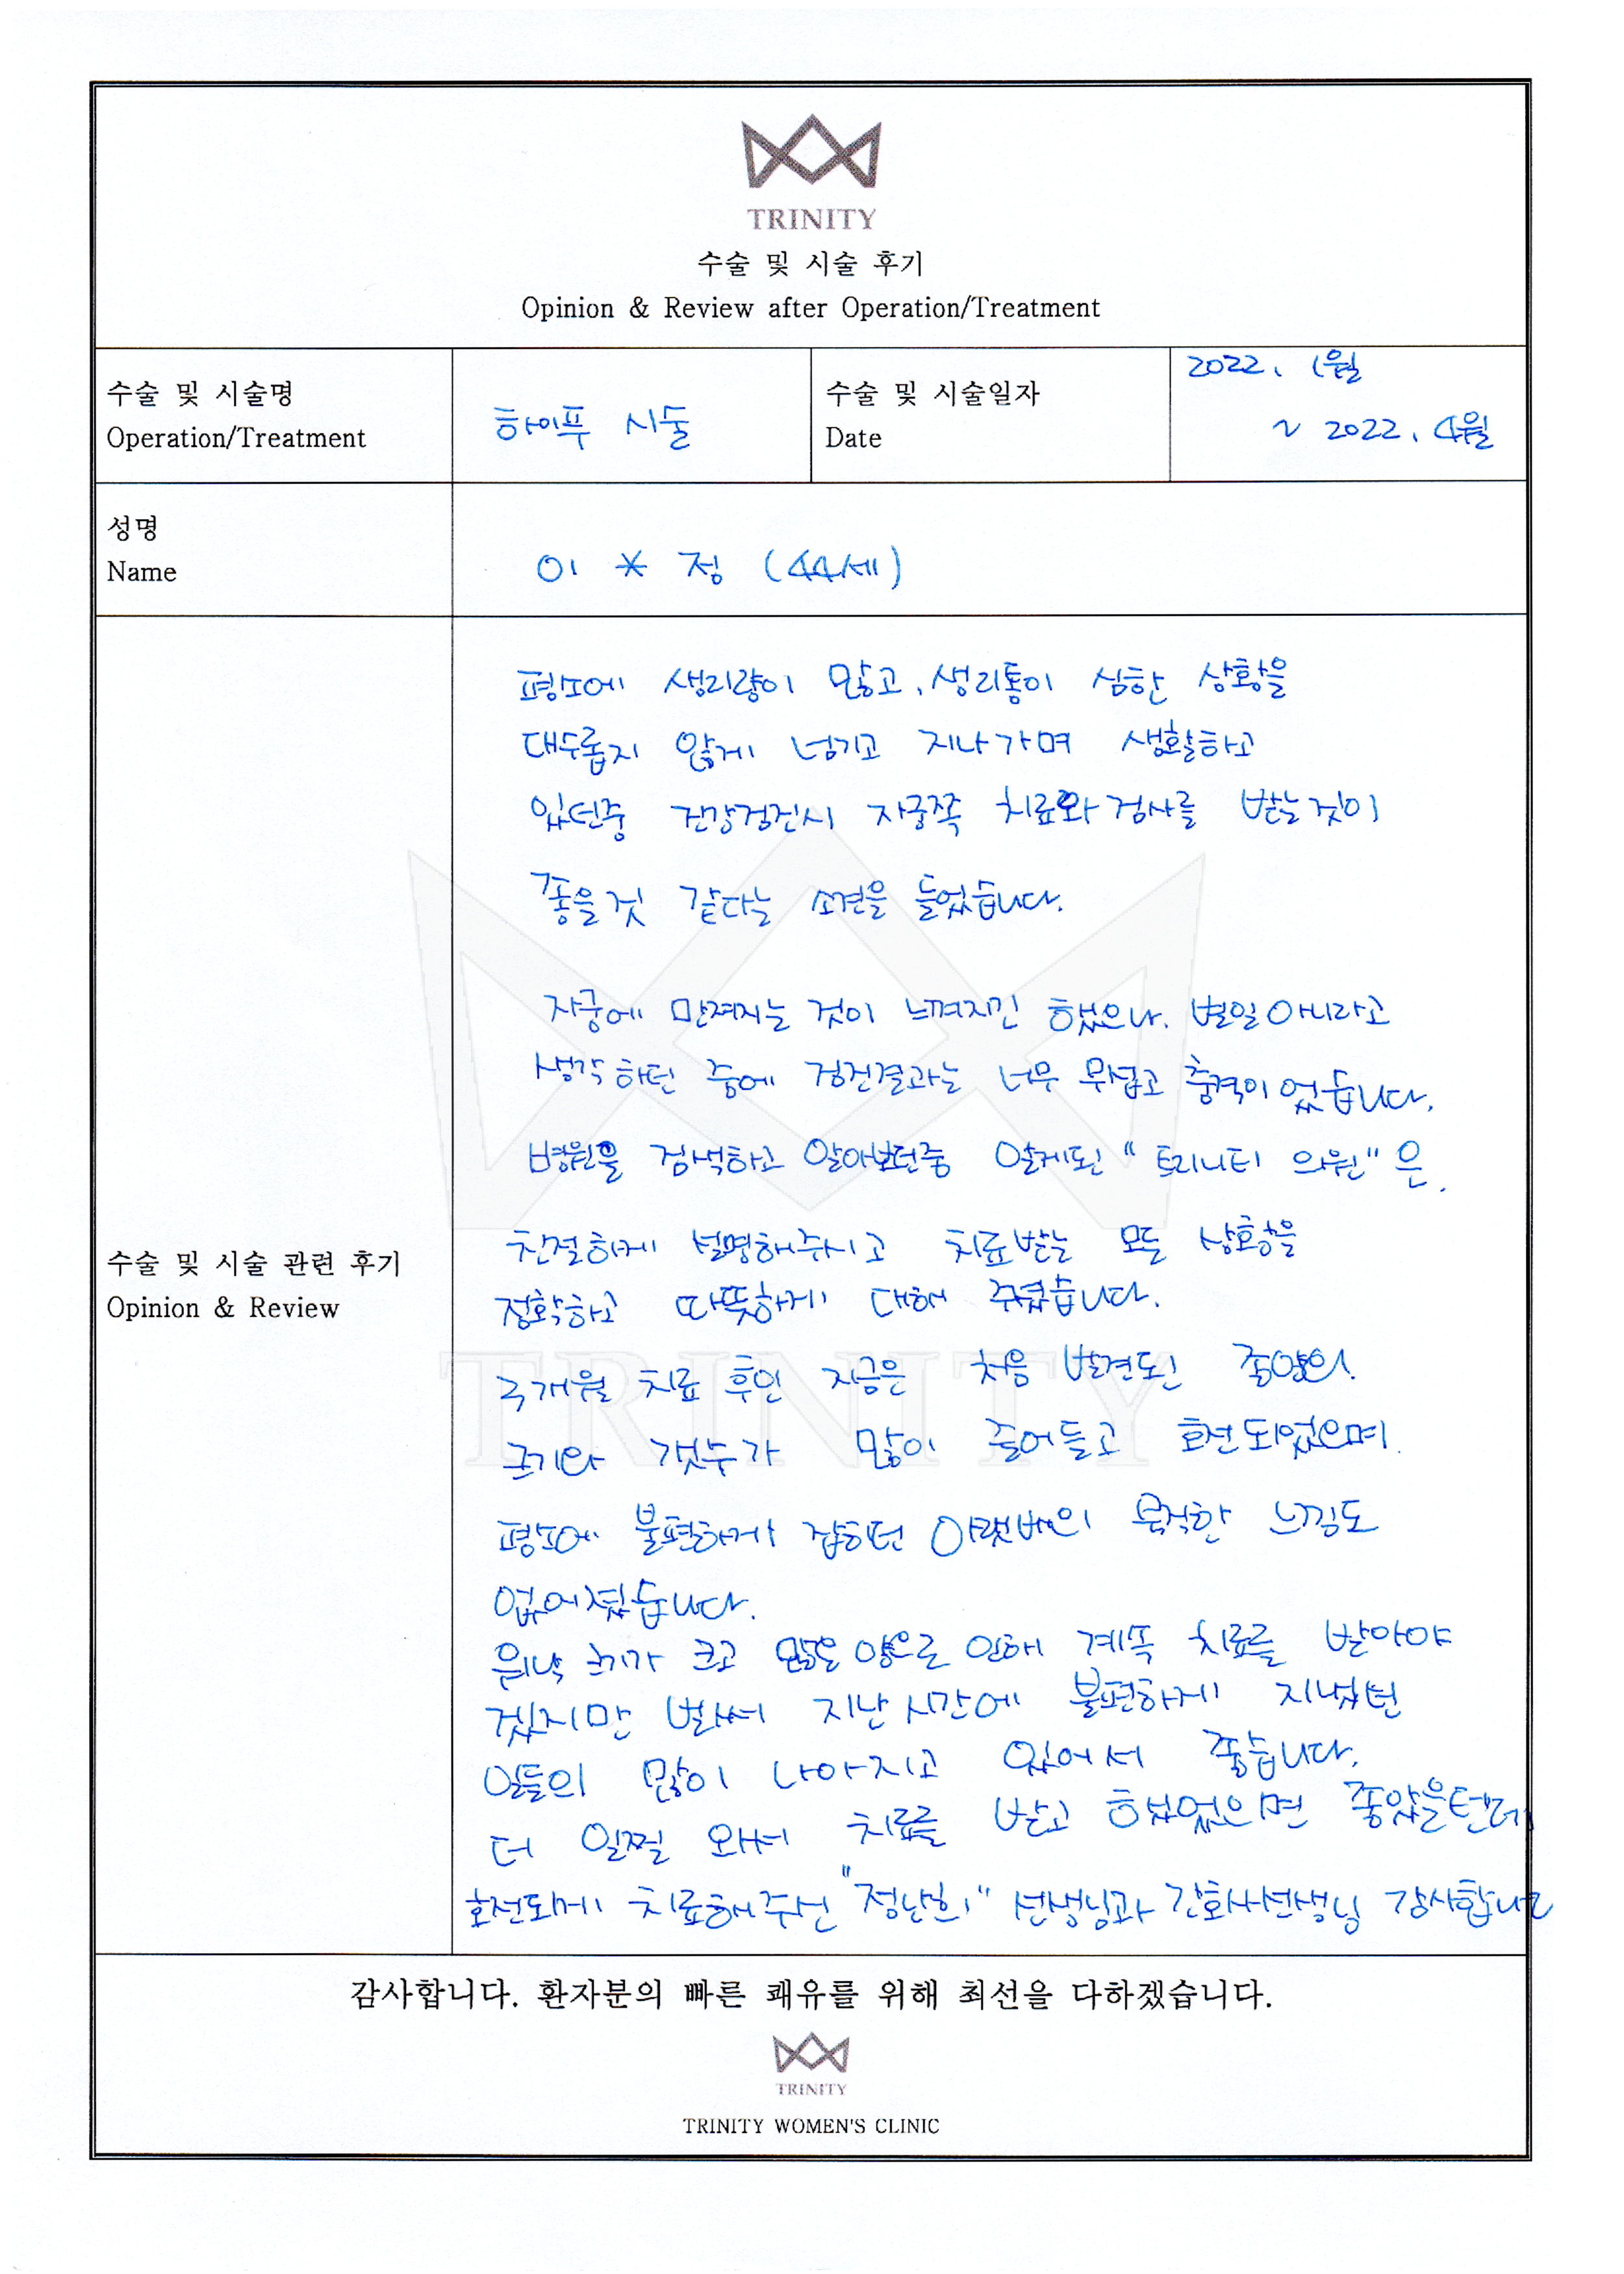 TRINITY
수술 및 시술 후기
Opinion & Review after Operation/Treatment
수술 및 시술명
Operation/Treatment
하이푸 시술
수술 및 시술일자
Date
2022. 1월
~ 2022. 4월
성명
Name
이 * 정 (44세)
수술 및 시술 관련 후기
Opinion & Review
평소에 생리량이 많고, 생리통이 심한 상황을
대수롭지 않게 넘기고 지나가며 생활하고
있던중 건강검진시 자궁쪽 치료와 검사를 받는것이
좋을것 같다는 소견을 들었습니다.
자궁에 만져지는 것이 느껴지긴 했으나. 별일아니라고
생각하던 중에 검진결과는 너무 무섭고 충격이었습니다.
병원을 검색하고 알아보던중 알게된 "트리니티 의원"은.
친절하게 설명해주시고 치료받는 모든 상황을
정확하고 따뜻하게 대해 주셨습니다.
3개월 치료 후인 지금은 처음 발견된 종양의
크기와 갯수가 많이 줄어들고 호전되었으며
평소에 불편하게 잡히던 아랫배의 묵직한 느낌도
없어졌습니다.
워낙 크기가 크고 많은 양으로 인해 계속 치료를 받아야
겠지만 벌써 지난시간에 불편하게 지냈던
일들의 많이 나아지고 있어서 좋습니다.
더 일찍 와서 치료를 받고 했었으면 좋았을텐데
호전되게 치료해주신 "정난희" 선생님과 간호사선생님 감사합니다
감사합니다. 환자분의 빠른 쾌유를 위해 최선을 다하겠습니다.
TRINITY
TRINITY WOMEN'S CLINIC
TRINITY